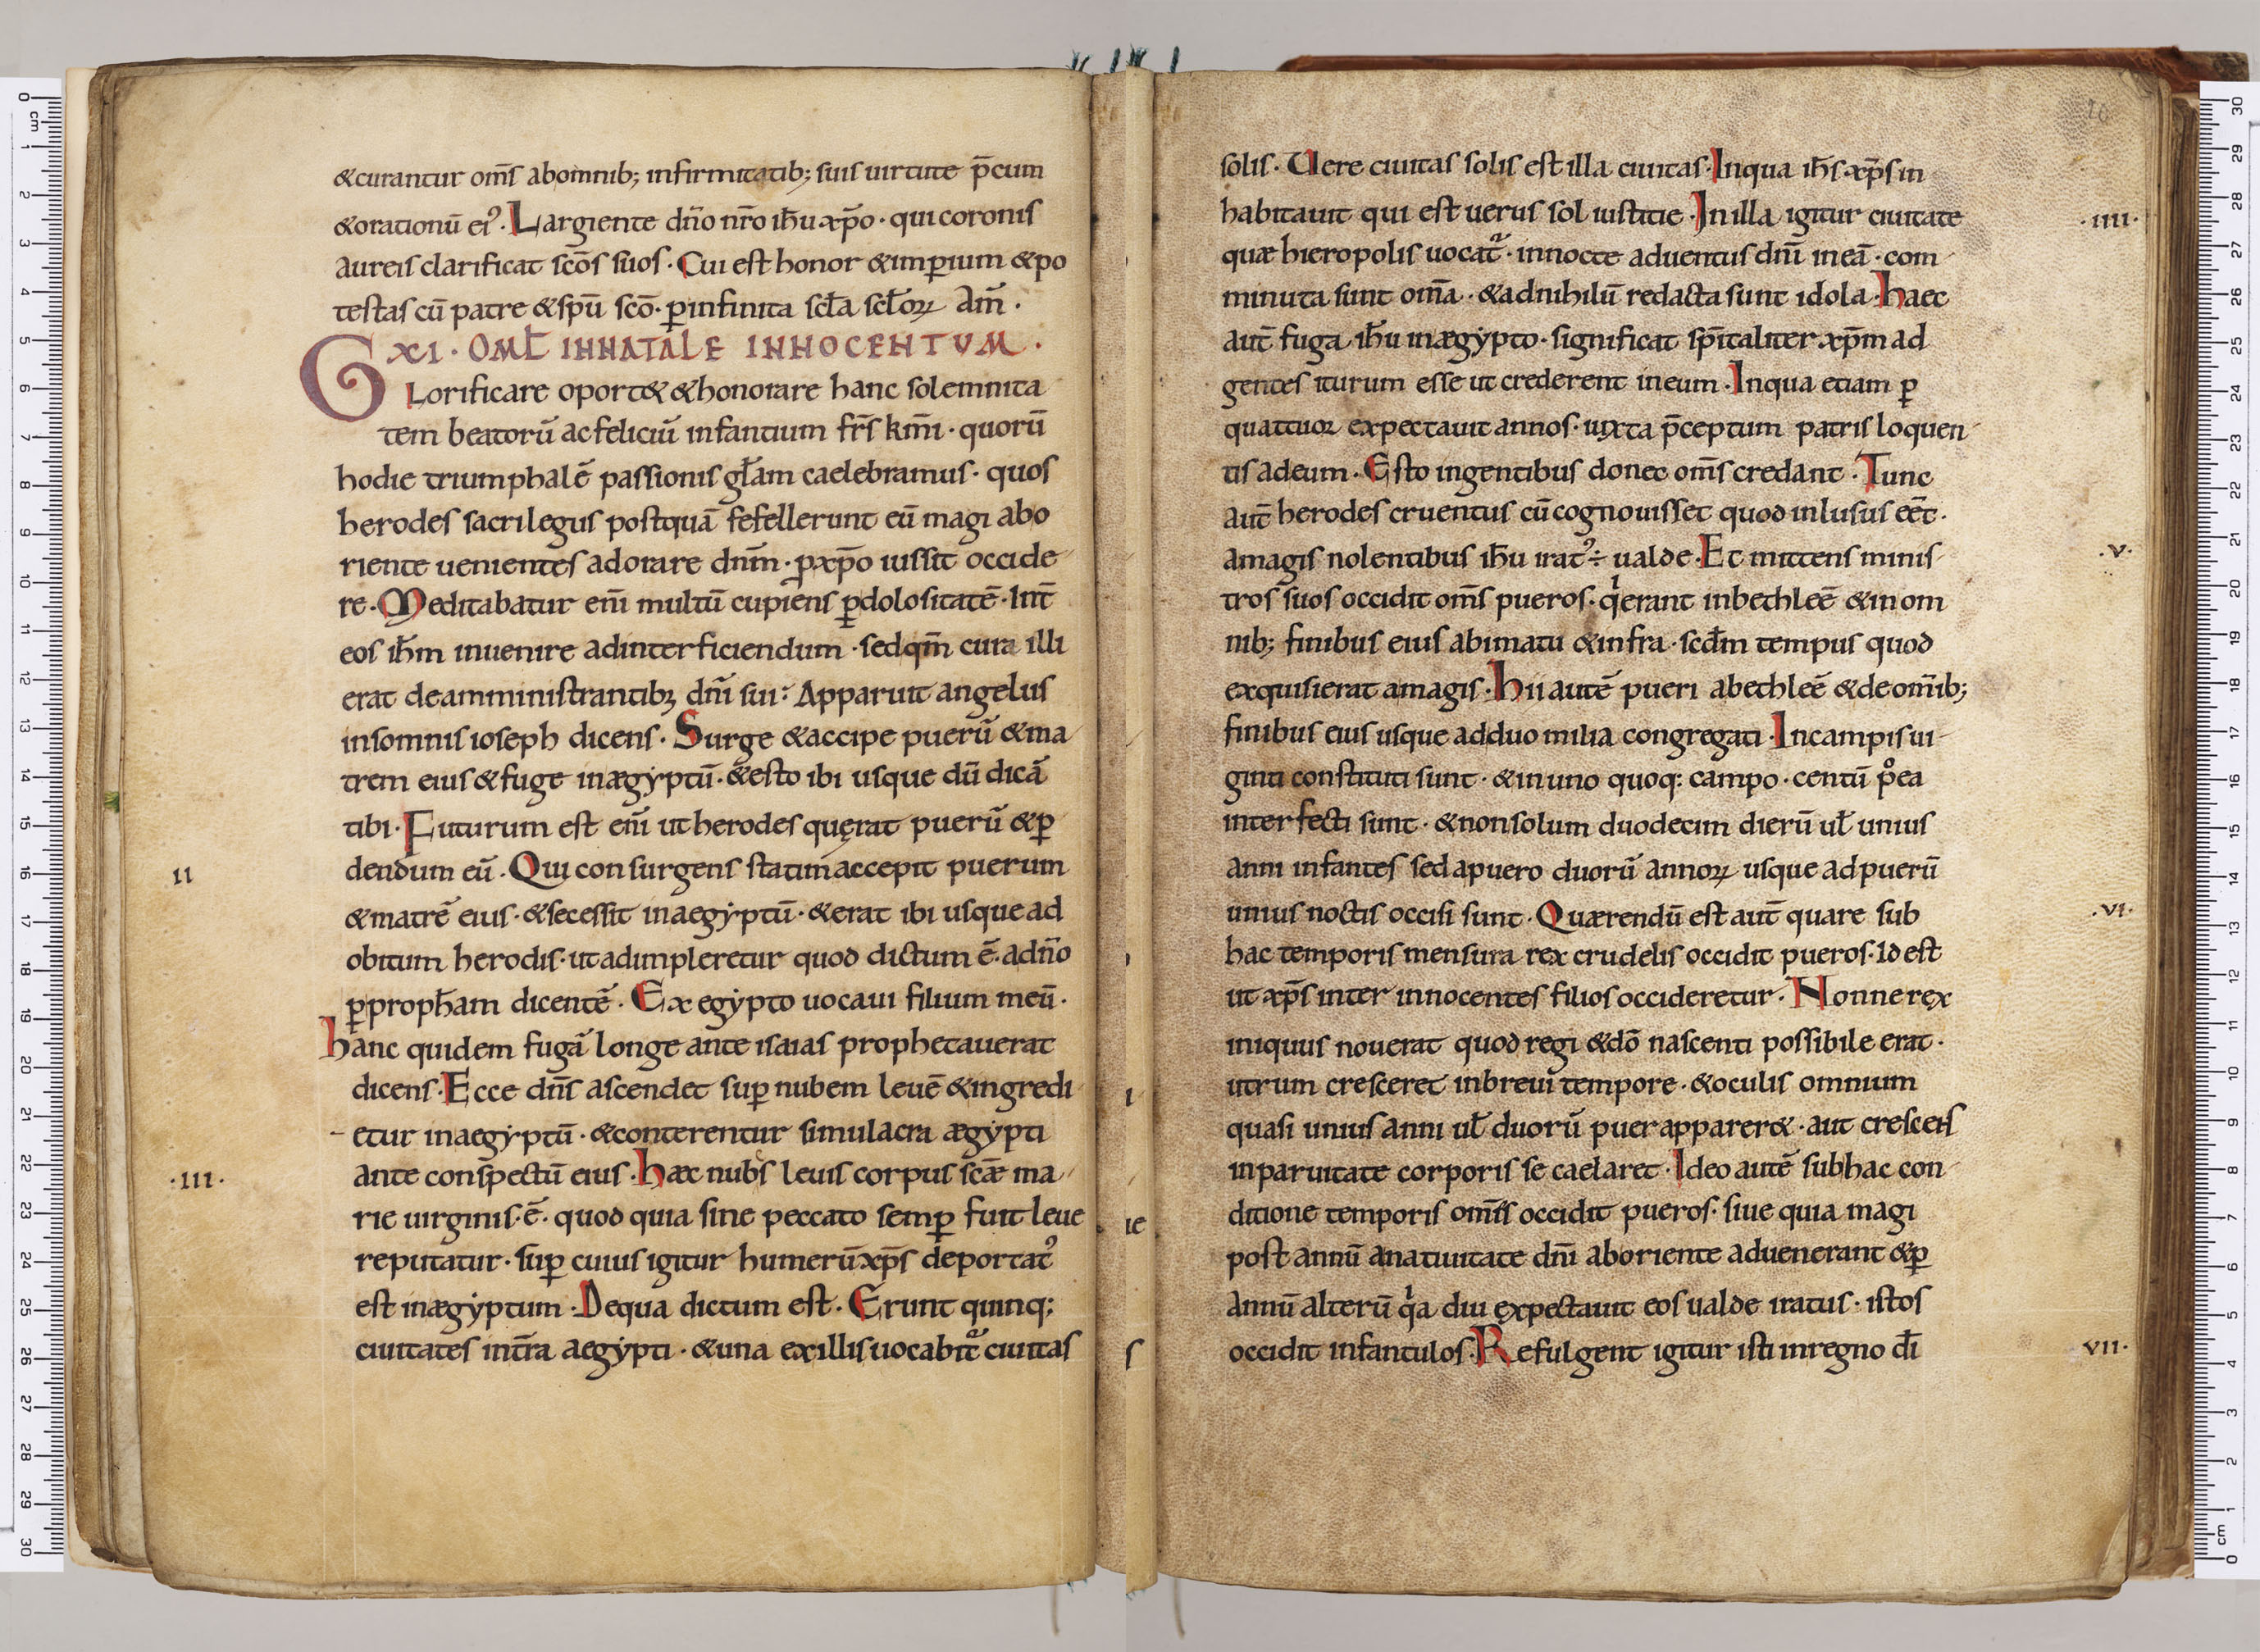 &curantur om̄s abomnib; infirmitatib; suis uirtute p̄cum
&orationū ei᾿. Largiente dn̄o nr̄o ih̄u xp̄o · qui coronis
aureis clarificat sc̄os suos · Cui est honor &imꝑium &po
testas cū patre &spū sc̄o · ꝑinfinita scl̄a scl̄oꝝ Am̄ ·
XI · OML̄ INNATALE INNOCENTVM ·
GLorificare oport& &honorare hanc solemnita
tem beatorū acfeliciū infantium fr̄s km̄i · quorū
hodie triumphalē passionis gl̄am caelebramus · quos
herodes sacrilegus postquā fefellerunt eū magi abo
riente uenientes adorare dnm̄ · ꝓxp̄o iussit occide
re · Meditabatur eni̅ multū cupiens ꝑdolositatē · Int̄
eos ih̄m inuenire adinterficiendum · sedqm̄ cura illi
erat deamministrantibꝫ dn̄i sui : Apparuit angelus
insomnis ioseph dicens · Surge &accipe puerū &ma
trem eius &fuge inægyptū · &esto ibi usque dū dicā
tibi · Futurum est eni̅ ut herodes quęrat puerū &ꝑ
dendum eū · Qui consurgens statim accepit puerum
II
&matrē eius · &secessit inaegyptū · &erat ibi usque ad
obitum herodis · ut adimpleretur quod dictum ē · adn̄o
ꝑproph̄am dicentē · Ex egypto uocaui filium meū ·
hanc quidem fugā longe ante isaias prophetauerat
dicens · Ecce dn̄s ascendet suꝑ nubem leuē &ingredi
etur inaegyptū · &conterentur simulacra ægypti
ante conspectū eius · hæc nubs leuis corpus scǣ ma
· III ·
rie uirginis · ē · quod quia sine peccato semꝑ fuit leue
reputatur · suꝑ cuius igitur humerū xp̄s deportat᾿
est inægyptum · Dequa dictum est · Erunt quinq;
ciuitates int̄ra aegypti · &una exillis uocabit᾿ ciuitas
solis · Uere ciuitas solis est illa ciuitas · Inqua ih̄s xp̄s in
habitauit qui est uerus sol iustitie · In illa igitur ciuitate
· IIII ·
quæ hieropolis uocat᾿ · innocte aduentus dn̄i ineā · com
minuta sunt om̄a · &adnihilū redacta sunt idola · haec
aut̄ fuga ih̄u inægypto · significat spi̅taliter xp̄m ad
gentes iturum esse ut crederent ineum · Inqua etiam ꝑ
quattuor expectauit annos · iuxta p̄ceptum patris loquen
tis adeum · Esto ingentibus donec om̄s credant · Tunc
aut̄ herodes cruentus cū cognouisset quod inlusus eēt ·
amagis nolentibus ih̄u irat᾿ ÷ ualde · Et mittens minis
· V ·
tros suos occidit om̄s pueros · qͥerant inbethleē &inom
nib; finibus eius abimatu &infra · scd̄m tempus quod
exquisierat amagis · hii autē pueri abethleē &deom̄ib;
finibus eius usque adduo milia congregati · Incampis ui
ginti constituti sunt · &inuno quoq: campo · centū p°ea
interfecti sunt · &nonsolum duodecim dierū ul̄ unius
anni infantes sed apuero duorū annoꝝ usque adpuerū
unius noctis occisi sunt · Quærendū est aut̄ quare sub
· VI ·
hac temporis mensura rex crudelis occidit pueros · Id est
ut xp̄s inter innocentes filios occideretur · Nonne rex
iniquus nouerat quod regi &dō nascenti possibile erat ·
utrum cresceret inbreui tempore · &oculis omnium
quasi unius anni ul̄ duorū puer apparer& · aut crescens
inparuitate corporis se caelaret · Ideo autē subhac con
ditione temporis om̄s occidit pueros · siue quia magi
post annū anatiuitate dn̄i aboriente aduenerant &ꝑ
annū alterū qͥa diu expectauit eos ualde iratus · istos
occidit infantulos · Refulgent igitur isti inregno dī
VII ·